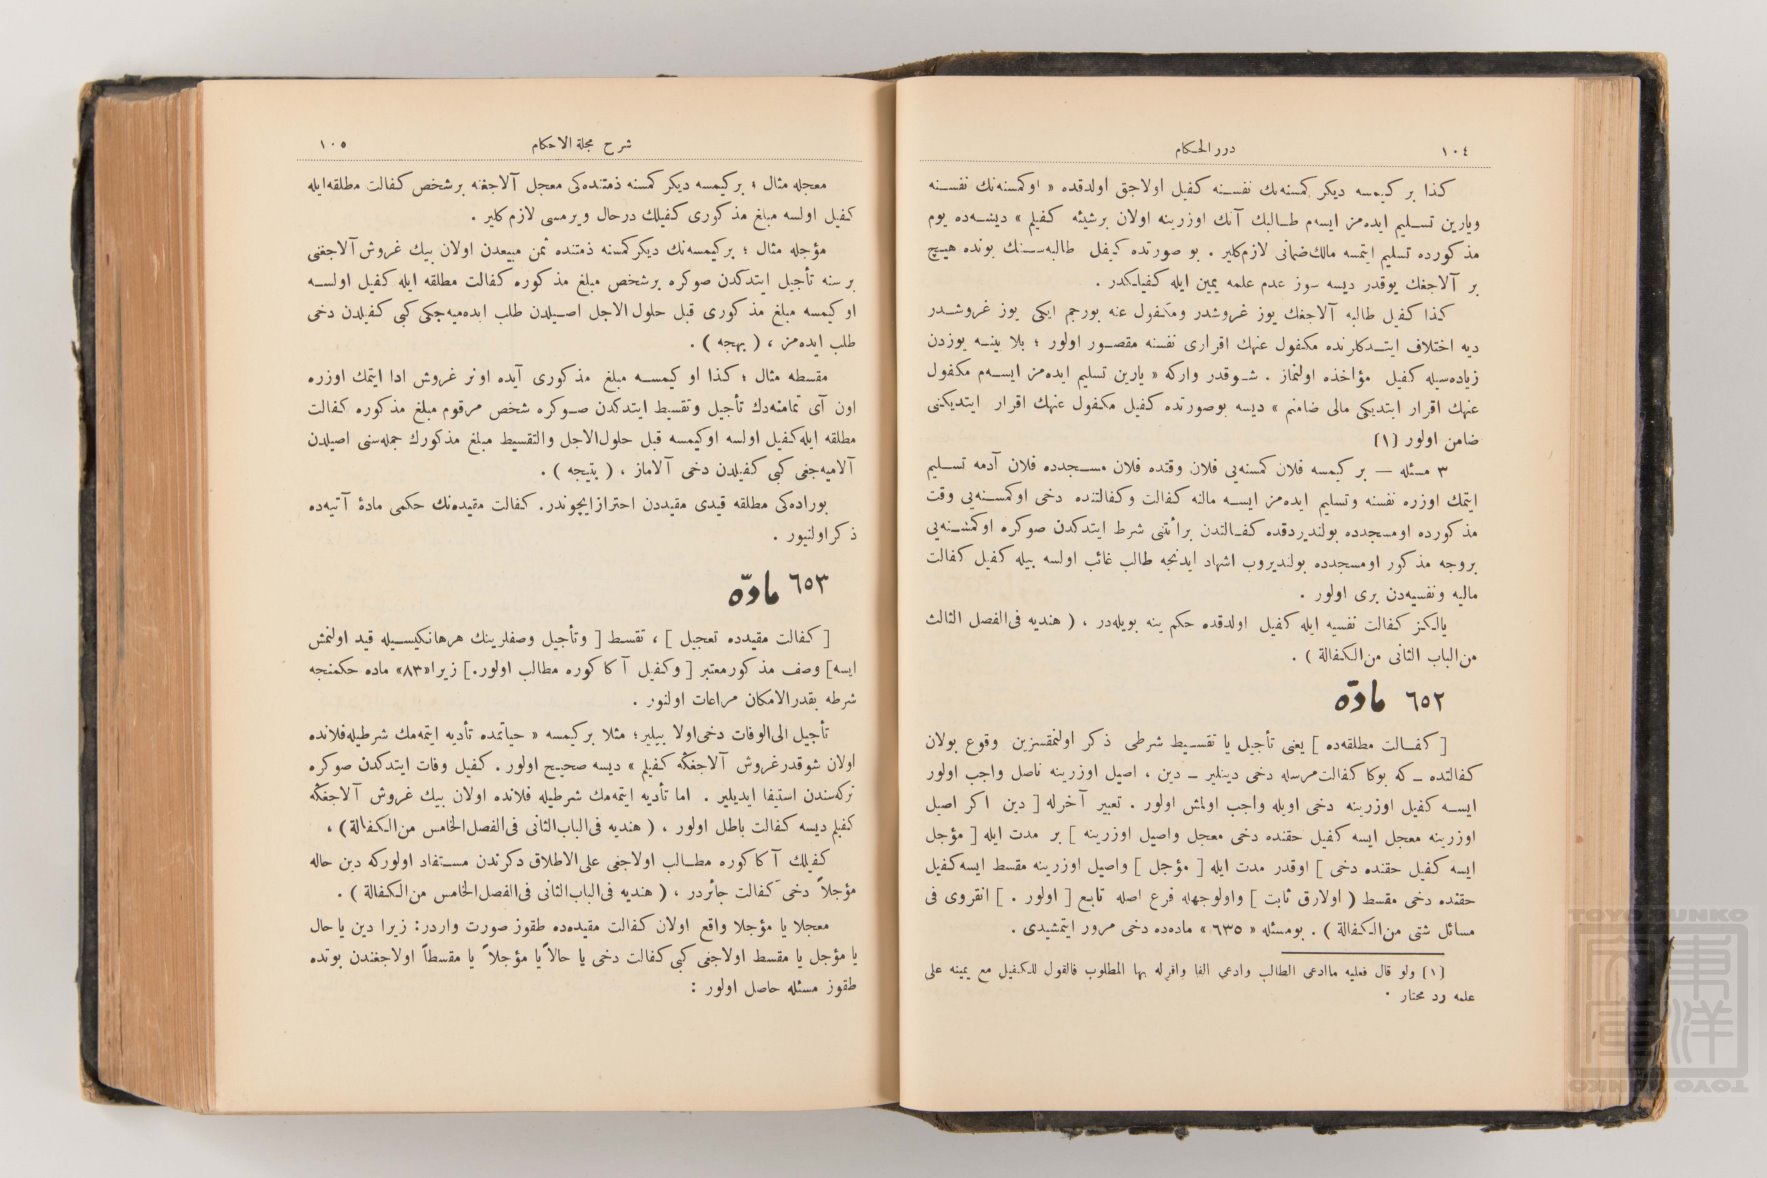 ١٠٤
درر الحكام
كذا بر كيمسه ديكر كمسنه‌نك نفسنه كفيل اولاجق اولدقده « اوكمسنه‌نك نفسنه
ويارين تسليم ايده‌مز ايسه‌م طالبك آنك اوزرينه اولان برشيئه كفيلم » ديسه‌ده يوم
مذكورده تسليم ايتمسه مالك ضمانى لازم‌كلير . بو صورتده كفيل طالبه سنك بونده هيچ
بر آلاجغك يوقدر ديسه سوز عدم علمه يمين ايله كفيلكدر .
كذا كفيل طالبه آلاجغك يوز غروشدر ومكفول عنه بورجم ايكى يوز غروشدر
ديه اختلاف ايتدكلرنده مكفول عنهك اقرارى نفسنه مقصور اولور ؛ بلا بينه يوزدن
زياده‌سيله كفيل مؤاخذه اولنماز . شوقدر واركه « يارين تسليم ايده‌مز ايسه‌م مكفول
عنهك اقرار ايتديكى مالى ضامنم » ديسه بوصورتده كفيل مكفول عنهك اقرار ايتديكنى
ضامن اولور (١)
٣ مسئله — بر كيمسه فلان كمسنه‌يى فلان وقتده فلان مسجدده فلان آدمه تسليم
ايتمك اوزره نفسنه وتسليم ايده‌مز ايسه مالنه كفالت وكفالتنده دخى اوكمسنه‌يى وقت
مذكورده اومسجدده بولنديردقده كفالتدن برائتنى شرط ايتدكدن صوكره اوكمسنه‌يى
بروجه مذكور اومسجدده بولنديروب اشهاد ايدنجه طالب غائب اولسه بيله كفيل كفالت
ماليه ونفسيه‌دن برى اولور .
يالكز كفالت نفسيه ايله كفيل اولدقده حكم ينه بويله‌در ، ( هنديه فى‌الفصل الثالث
من‌الباب الثانى من‌الكفالة ) .
٦٥٢ مادّه
[ كفالت مطلقه‌ده ] يعنى تأجيل يا تقسيط شرطى ذكر اولنمقسزين وقوع بولان
كفالتده ـ كه بوكا كفالت‌مرسله دخى دينلير ـ دين ، اصيل اوزرينه ناصل واجب اولور
ايسه كفيل اوزرينه دخى اويله واجب اولمش اولور . تعبير آخرله [ دين اكر اصيل
اوزرينه معجل ايسه كفيل حقنده دخى معجل واصيل اوزرينه ] بر مدت ايله [ مؤجل
ايسه كفيل حقنده دخى ] اوقدر مدت ايله [ مؤجل ] واصيل اوزرينه مقسط ايسه‌كفيل
حقنده دخى مقسط ( اولارق ثابت ] واولوجهله فرع اصله تابع [ اولور . ] انقروى فى
مسائل شتى من‌الكفالة ) . بومسئله « ٦٣٥ » ماده‌ده دخى مرور ايتمشيدى .
(١) ولو قال فعليه ماادعى الطالب وادعى الفا واقرله بها المطلوب فالقول للكفيل مع يمينه على
علمه رد محتار .
شرح مجلة الاحكام
١٠٥
معجله مثال ؛ بركيمسه ديكر كمسنه ذمتنده‌كى معجل آلاجغنه برشخص كفالت مطلقه‌ايله
كفيل اولسه مبلغ مذكورى كفيلك درحال ويرمسى لازم‌كلير .
مؤجله مثال ؛ بركيمسه‌نك ديكر كمسنه ذمتنده ثمن مبيعدن اولان بيك غروش آلاجغنى
بر سنه تأجيل ايتدكدن صوكره برشخص مبلغ مذكوره كفالت مطلقه ايله كفيل اولسه
او كيمسه مبلغ مذكورى قبل حلول‌الاجل اصيلدن طلب ايده‌ميه‌جكى كبى كفيلدن دخى
طلب ايده‌مز ، ( بهجه ) .
مقسطه مثال ؛ كذا او كيمسه مبلغ مذكورى آيده اونر غروش ادا ايتمك اوزره
اون آى تمامنه‌دك تأجيل وتقسيط ايتدكدن صوكره شخص مرقوم مبلغ مذكوره كفالت
مطلقه ايله‌كفيل اولسه اوكيمسه قبل حلول‌الاجل والتقسيط مبلغ مذكورك جمله‌سنى اصيلدن
آلاميه‌جغى كبى كفيلدن دخى آلاماز ، ( نتيجه ) .
بوراده‌كى مطلقه قيدى مقيددن احترازايچوندر. كفالت مقيده‌نك حكمى مادۀ آتيه‌ده
ذكر اولنيور .
٦٥٣ مادّه
[ كفالت مقيده‌ده تعجيل ] ، تقسط [ وتأجيل وصفلرينك هرهانكيسيله قيد اولنمش
ايسه] وصف مذكورمعتبر [ وكفيل آ كا كوره مطالب اولور.] زيرا«٨٣» ماده حكمنجه
شرطه بقدرالامكان مراعات اولنور .
تأجيل الى‌الوفات دخى‌اولا بيلير؛ مثلا بركيمسه « حياتمده تأديه ايتمه‌مك شرطيله‌فلانده
اولان شوقدرغروش آلاجغكه كفيلم » ديسه صحيح اولور . كفيل وفات ايتدكدن صوكره
تركه‌سندن استيفا ايديلير . اما تأديه ايتمه‌مك شرطيله فلانده اولان بيك غروش آلاجغكه
كفيلم ديسه كفالت باطل اولور ، ( هنديه فى‌الباب‌الثانى فى‌الفصل‌الخامس من‌الكفالة) ،
كفيلك آ كا كوره مطالب اولاجغى على‌الاطلاق ذكرندن مستفاد اولوركه دين حاله
مؤجلاً دخى كفالت جائزدر ، ( هنديه فى‌الباب‌الثانى فى‌الفصل‌الخامس من‌الكفالة ) .
معجلا يا مؤجلا واقع اولان كفالت مقيده‌ده طقوز صورت واردر: زيرا دين يا حال
يا مؤجل يا مقسط اولاجغى كبى كفالت دخى يا حالاً يا مؤجلاً يا مقسطاً اولاجغندن بونده
طقوز مسئله حاصل اولور :
TOYO BUNKO
東洋文庫
TOYO BUNKO